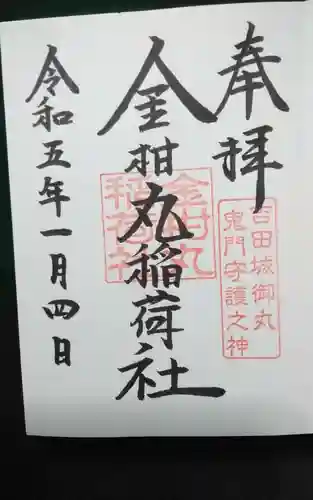 奉拝
吉田城御丸
鬼門守護之神
金柑丸稲荷社
金柑丸
稲荷社
令和五年一月四日